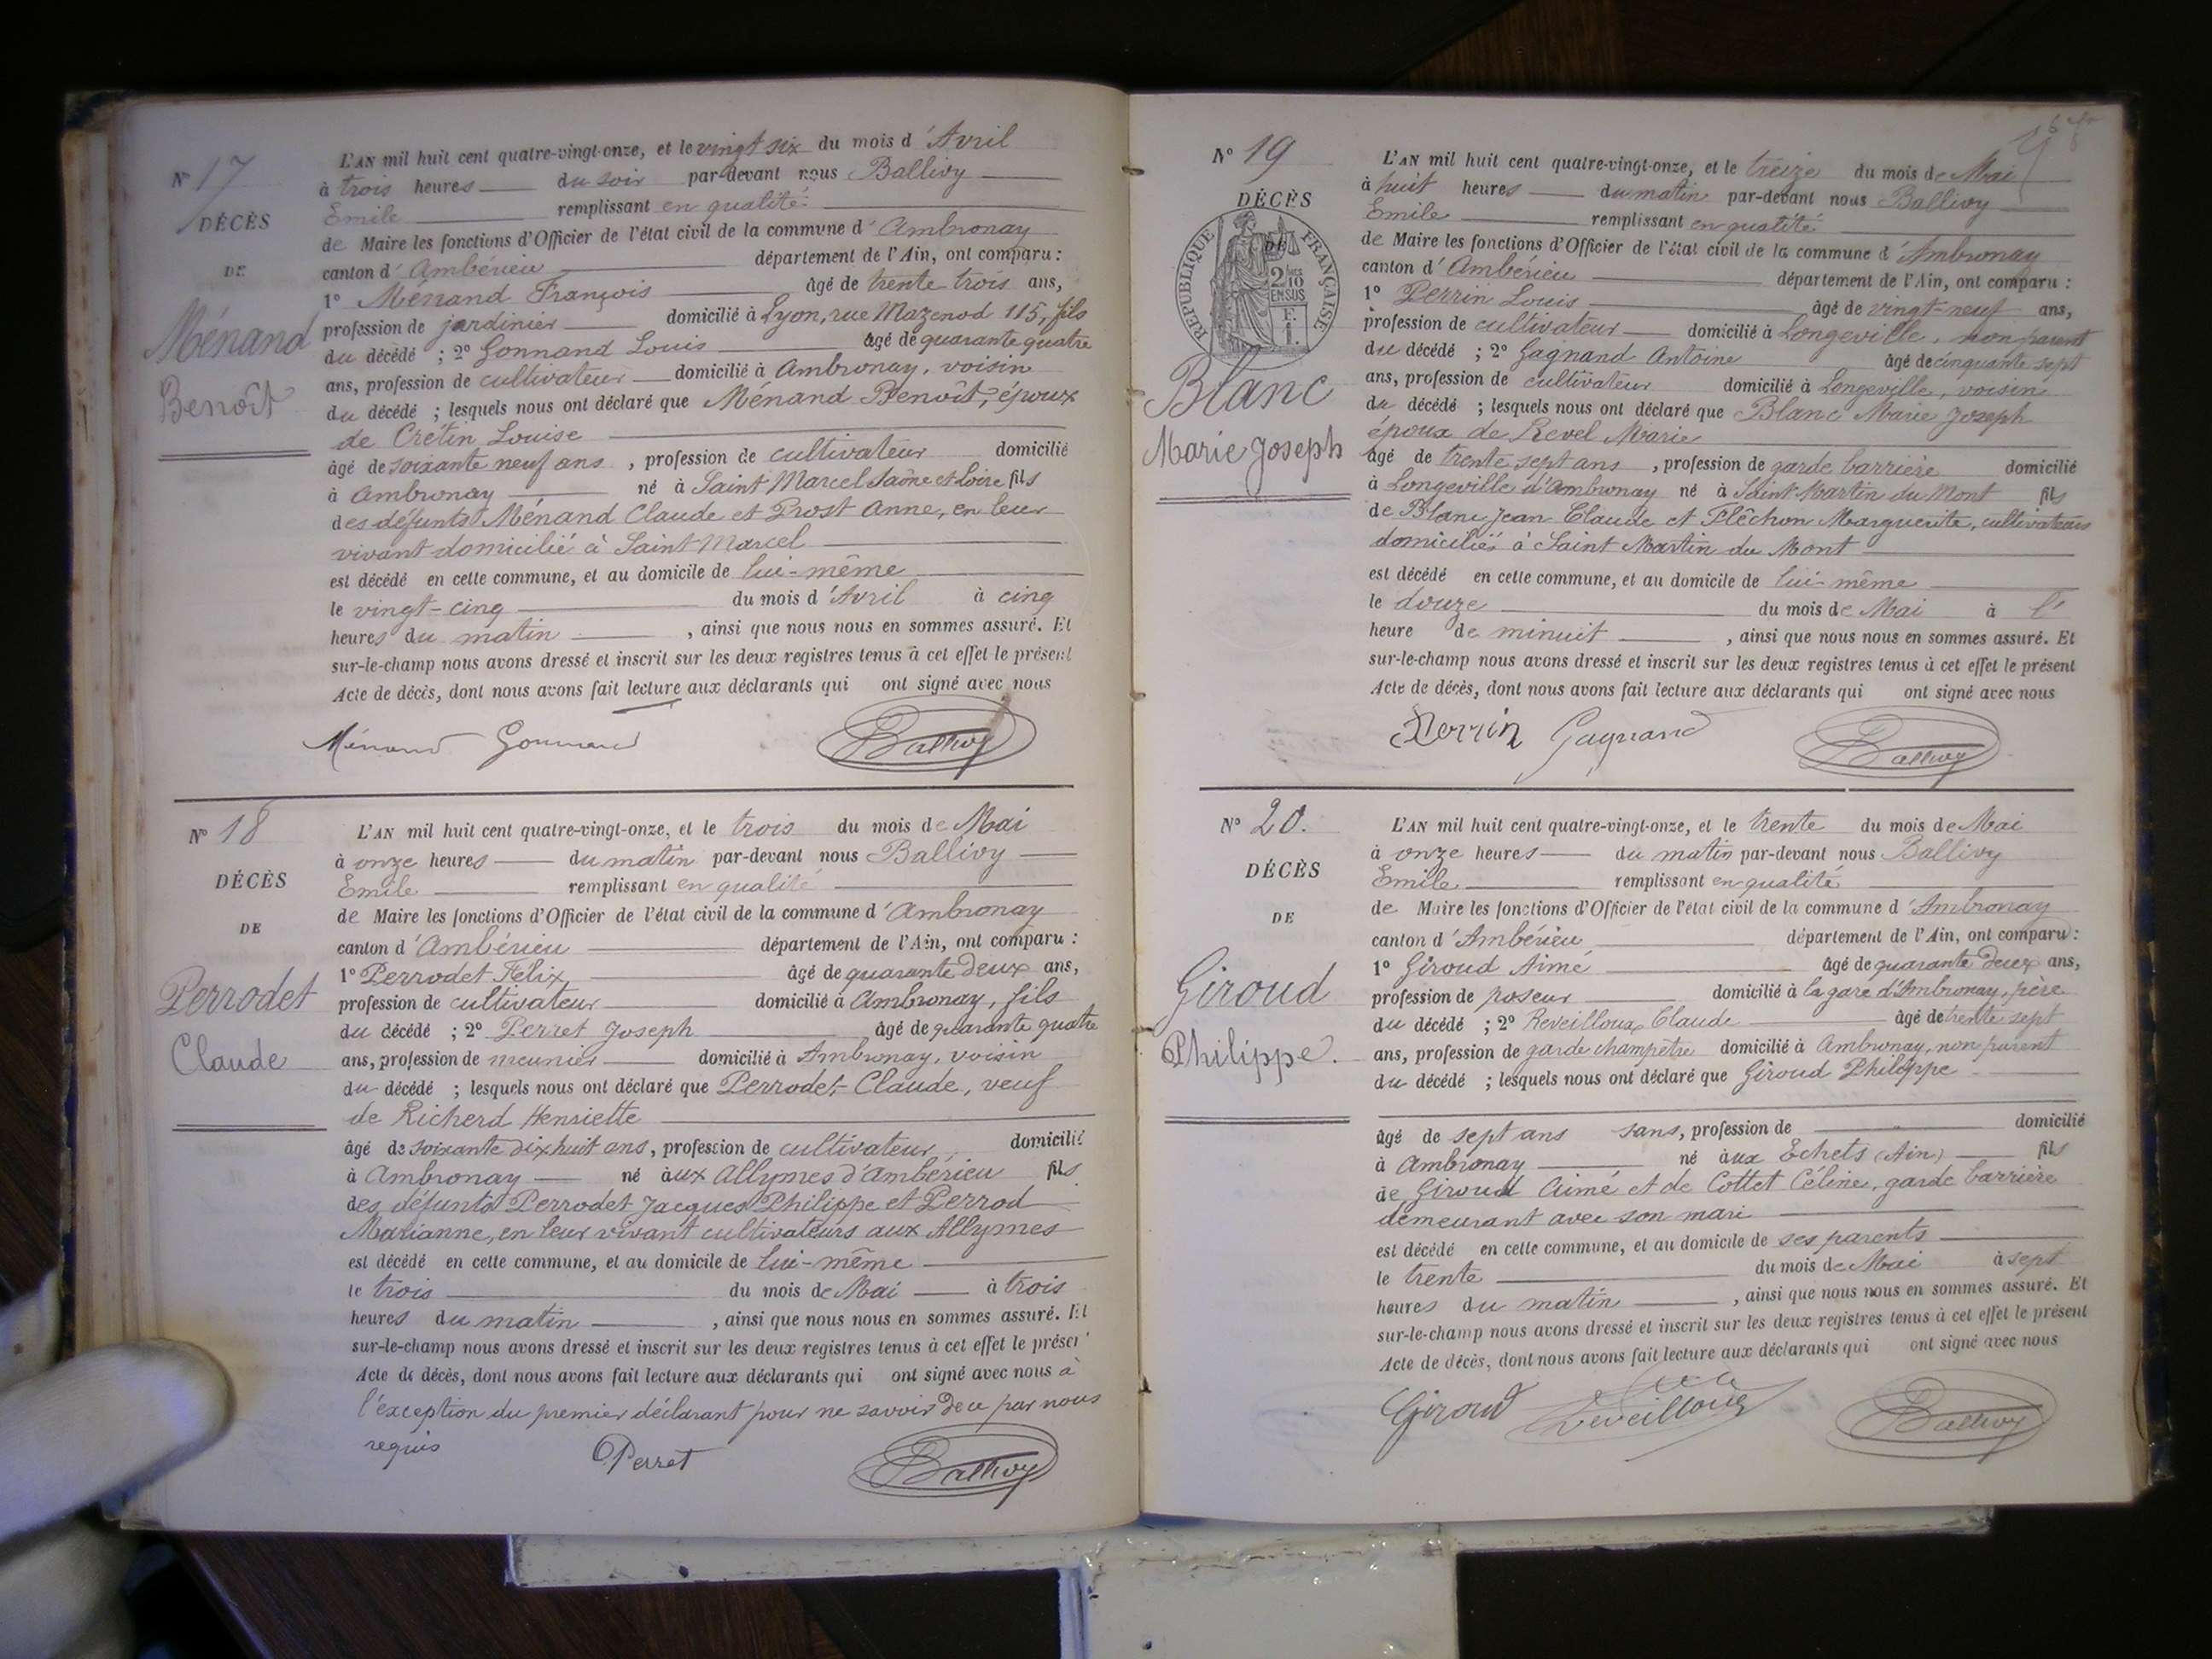 N° 17
DÉCÈS
DE
Ménand
Benoît
L'AN mil huit cent quatre-vingt-onze, et le vingt six du mois d'Avril
à trois heures du soir par-devant nous Ballivy
Emile remplissant en qualité
de Maire les fonctions d'Officier de l'état civil de la commune d'Ambronay
canton d'Ambérieu département de l'Ain, ont comparu :
1° Ménand François âgé de trente trois ans,
profession de jardinier domicilié à Lyon, rue Mazenod 115, fils
du décédé ; 2° Gonnand Louis âgé de quarante quatre
ans, profession de cultivateur domicilié à Ambronay, voisin
du décédé ; lesquels nous ont déclaré que Ménand Benoît, époux
de Crétin Louise
âgé de soixante neuf ans, profession de cultivateur domicilié
à Ambronay né à Saint Marcel Saône et Loire fils
des défunts Ménand Claude et Prost Anne, en leur
vivant domicilié à Saint Marcel
est décédé en cette commune, et au domicile de lui-même
le vingt-cinq du mois d'Avril à cinq
heures du matin, ainsi que nous nous en sommes assuré. Et
sur-le-champ nous avons dressé et inscrit sur les deux registres tenus à cet effet le présent
Acte de décès, dont nous avons fait lecture aux déclarants qui ont signé avec nous
Ménand Gonnand Ballivy
N° 18
DÉCÈS
DE
Perrodet
Claude
L'AN mil huit cent quatre-vingt-onze, et le trois du mois de Mai
à onze heures du matin par-devant nous Ballivy
Emile remplissant en qualité
de Maire les fonctions d'Officier de l'état civil de la commune d'Ambronay
canton d'Ambérieu département de l'Ain, ont comparu :
1° Perrodet Félix âgé de quarante deux ans,
profession de cultivateur domicilié à Ambronay, fils
du décédé ; 2° Perret Joseph âgé de quarante quatre
ans, profession de meunier domicilié à Ambronay, voisin
du décédé ; lesquels nous ont déclaré que Perrodet Claude, veuf
de Richerd Henriette
âgé de soixante dix huit ans, profession de cultivateur domicilié
à Ambronay né aux Allymes d'Ambérieu fils
des défunts Perrodet Jacques Philippe et Perrod
Marianne, en leur vivant cultivateurs aux Allymes
est décédé en cette commune, et au domicile de lui-même
le trois du mois de Mai à trois
heures du matin, ainsi que nous nous en sommes assuré. Et
sur-le-champ nous avons dressé et inscrit sur les deux registres tenus à cet effet le présent
Acte de décès, dont nous avons fait lecture aux déclarants qui ont signé avec nous à
l'exception du premier déclarant pour ne savoir de ce par nous
requis
Perret Ballivy
N° 19
DÉCÈS
DE
RÉPUBLIQUE FRANÇAISE
2/10
EN SUS
Blanc
Marie Joseph
L'AN mil huit cent quatre-vingt-onze, et le treize du mois de Mai
à huit heures du matin par-devant nous Ballivy
Emile remplissant en qualité
de Maire les fonctions d'Officier de l'état civil de la commune d'Ambronay
canton d'Ambérieu département de l'Ain, ont comparu :
1° Perrin Louis âgé de vingt-neuf ans,
profession de cultivateur domicilié à Longeville, non parent
du décédé ; 2° Gagnand Antoine âgé de cinquante sept
ans, profession de cultivateur domicilié à Longeville, voisin
du décédé ; lesquels nous ont déclaré que Blanc Marie Joseph
époux de Revel Marie
âgé de trente sept ans, profession de garde barrière domicilié
à Longeville d'Ambronay né à Saint Martin du Mont fils
de Blanc Jean Claude et Fléchon Marguerite, cultivateurs
domiciliés à Saint Martin du Mont
est décédé en cette commune, et au domicile de lui-même
le douze du mois de Mai à l'
heure de minuit, ainsi que nous nous en sommes assuré. Et
sur-le-champ nous avons dressé et inscrit sur les deux registres tenus à cet effet le présent
Acte de décès, dont nous avons fait lecture aux déclarants qui ont signé avec nous
Perrin Gagnand Ballivy
N° 20.
DÉCÈS
DE
Giroud
Philippe.
L'AN mil huit cent quatre-vingt-onze, et le trente du mois de Mai
à onze heures du matin par-devant nous Ballivy
Emile remplissant en qualité
de Maire les fonctions d'Officier de l'état civil de la commune d'Ambronay
canton d'Ambérieu département de l'Ain, ont comparu :
1° Giroud Aimé âgé de quarante deux ans,
profession de poseur domicilié à la gare d'Ambronay, père
du décédé ; 2° Reveilloux Claude âgé de trente sept
ans, profession de garde champêtre domicilié à Ambronay, non parent
du décédé ; lesquels nous ont déclaré que Giroud Philippe
âgé de sept ans sans, profession de domicilié
à Ambronay né aux Echets (Ain) fils
de Giroud Aimé et de Cottet Céline, garde barrière
demeurant avec son mari
est décédé en cette commune, et au domicile de ses parents
le trente du mois de Mai à sept
heures du matin, ainsi que nous nous en sommes assuré. Et
sur-le-champ nous avons dressé et inscrit sur les deux registres tenus à cet effet le présent
Acte de décès, dont nous avons fait lecture aux déclarants qui ont signé avec nous
Giroud Reveilloux Ballivy